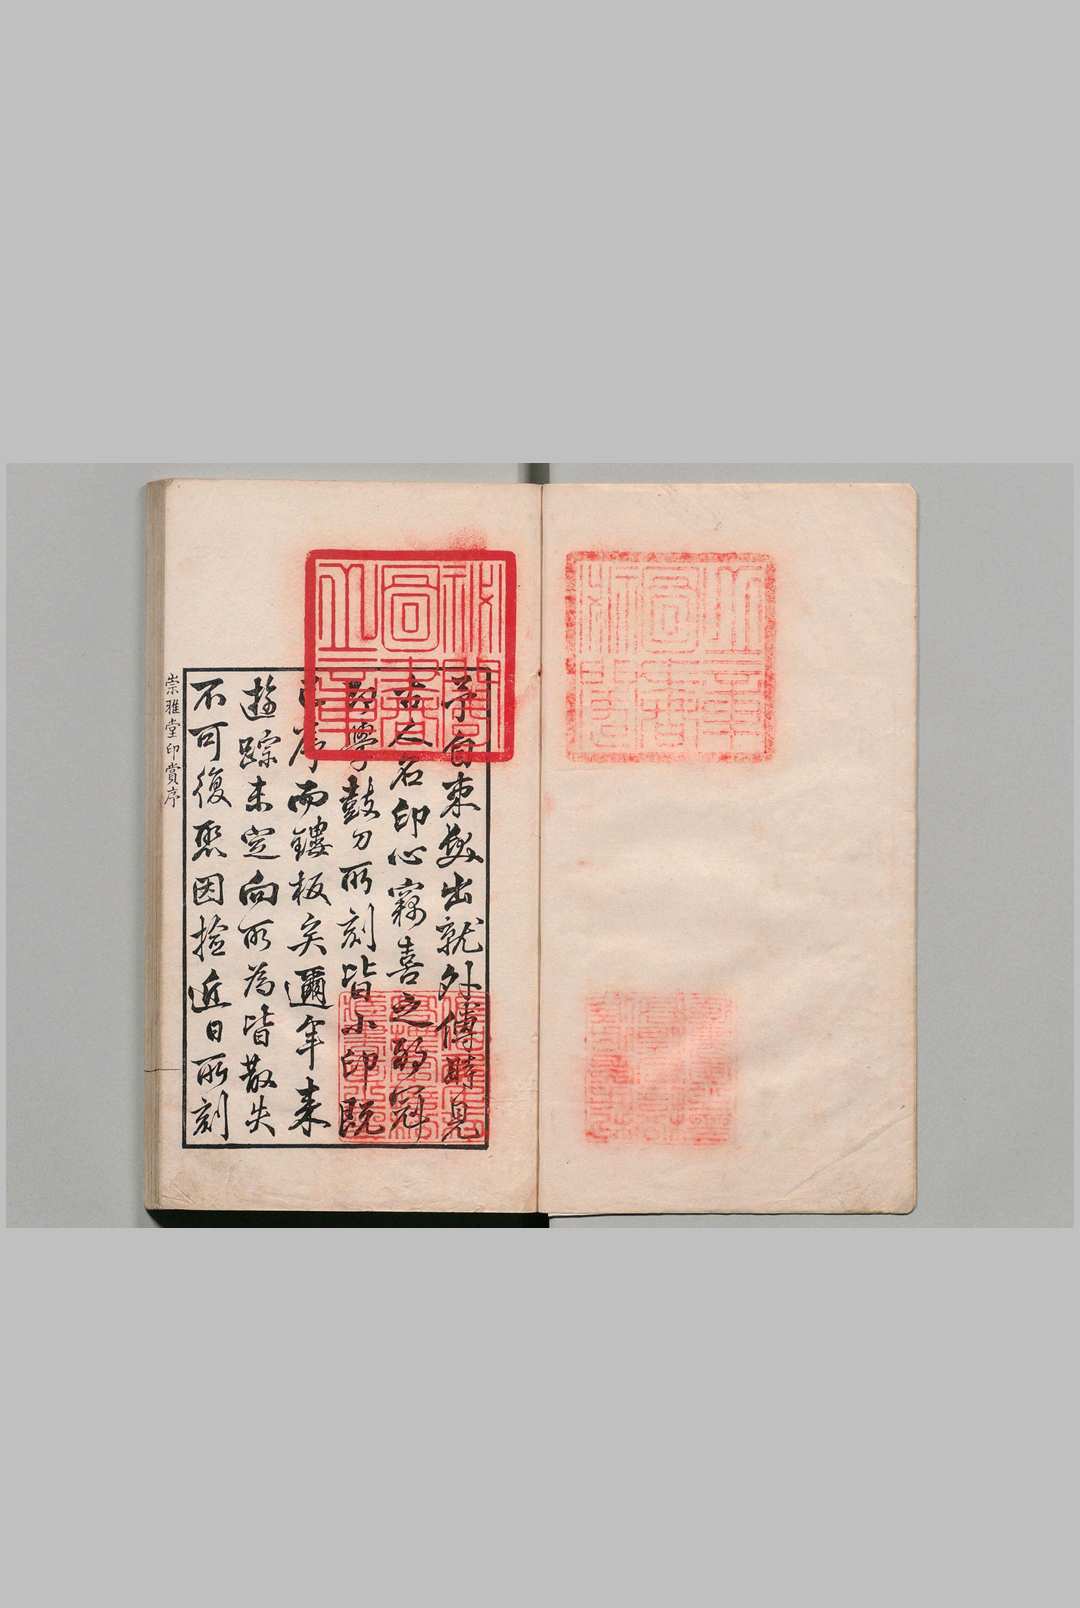 秘閣
圖書
之章
予自束髮出就外傅時見
古人名印心竊喜之弱冠
即學鼓刀所刻皆小印既
已序而鏤板矣邇年来
遊踪未定向所為皆散失
不可復聚因撿近日所刻
崇雅堂印賞序